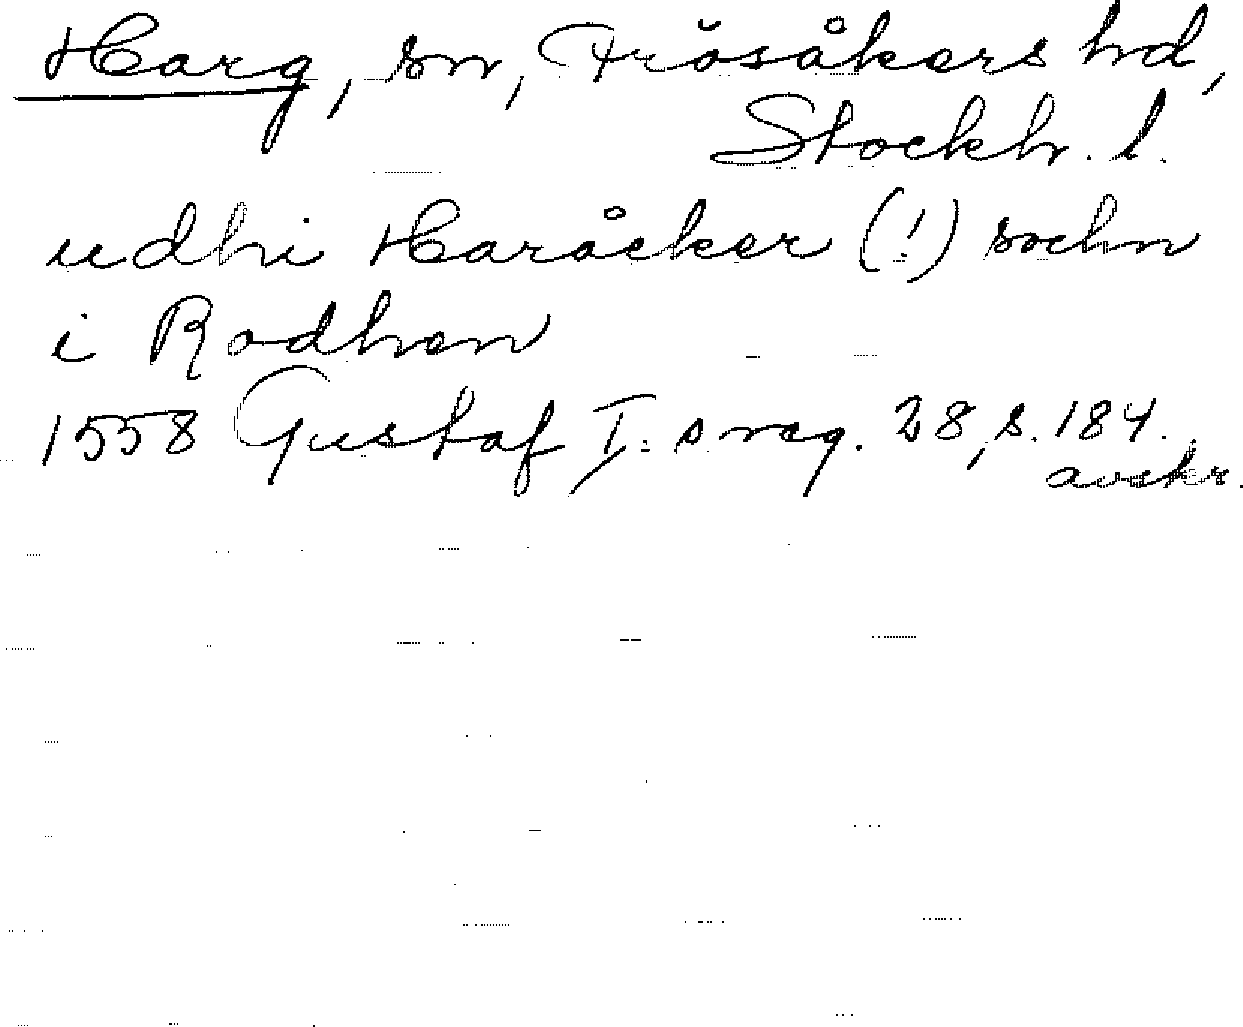 Harg, sn, Frösåkers hd,
Stockh. l.
udhi Haråcker (!) sochn
i Rodhen
1558 Gustaf I:s reg. 28, s. 184.
avskr.